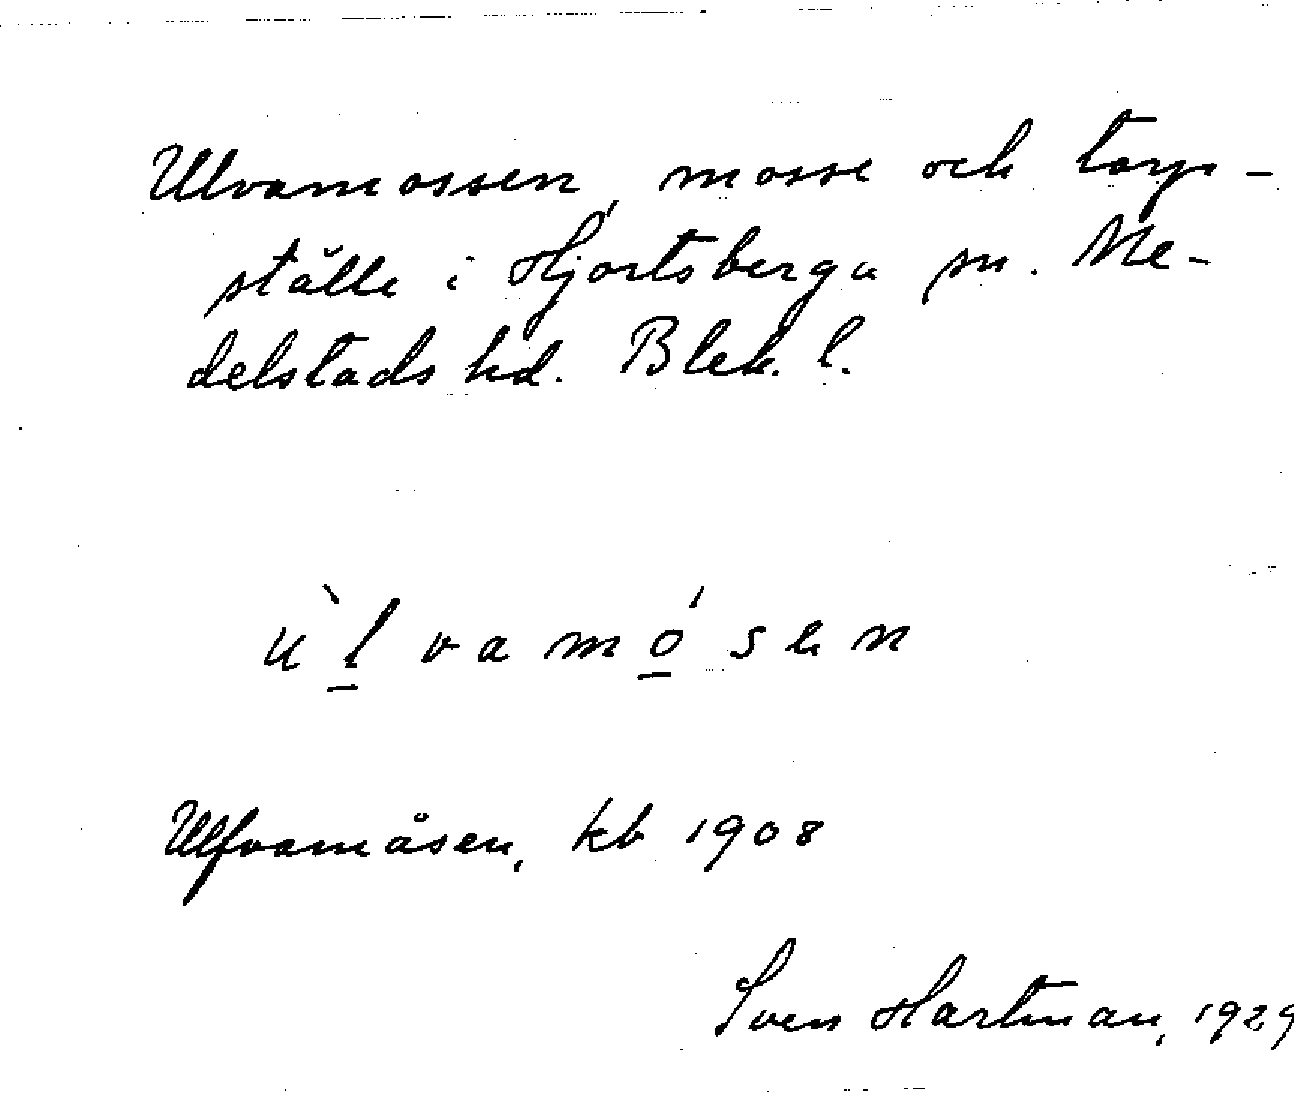 Ulvamossen, mosse och torp-
ställe i Hjortsberga sn. Me-
delstads hd. Blek. l.
ùl̲vamó̲sen
Ulfvamåsen, kb 1908
Sven Hartman, 1929